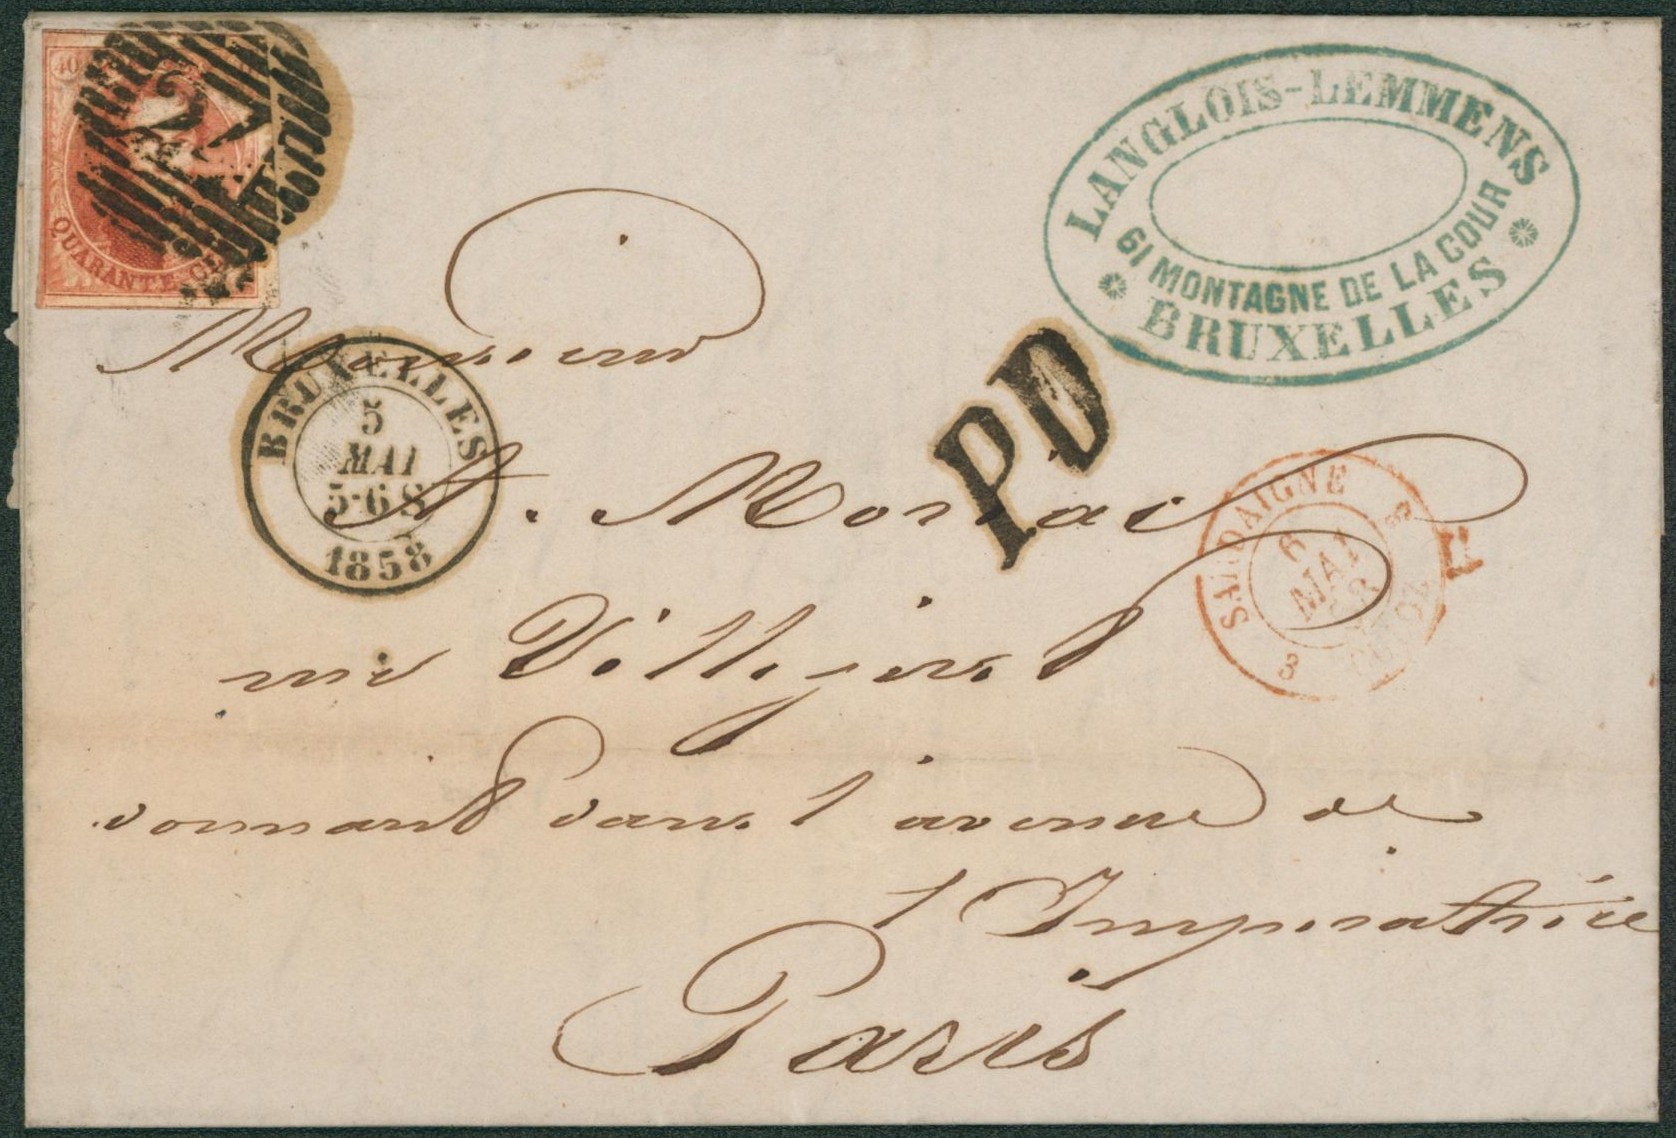 40
24
QUARANTE CE
LANGLOIS-LEMMENS
61 MONTAGNE DE LA COUR
BRUXELLES
BRUXELLES
5
MAI
5-6 S
1858
PD
6
MAI
3
Monsieur
A.
rue Villejust
donnant dans l'avenue de
l'Impératrice
Paris